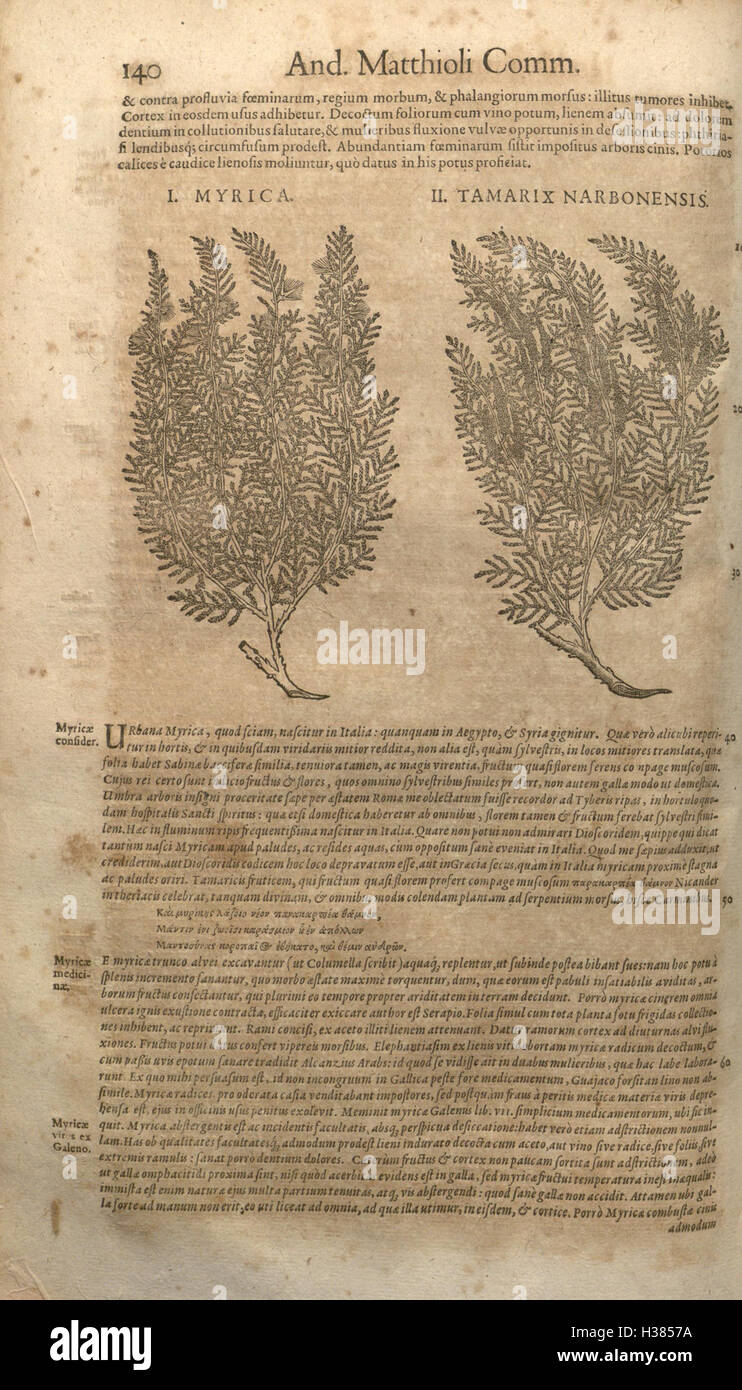 140 And. Matthioli Comm.
& contra profluvia fœminarum, regium morbum, & phalangiorum morsus: illitus tumores inhibet.
Cortex in eosdem usus adhibetur. Decoctum foliorum cum vino potum, lienem absumit: ad dolorem
dentium in collutionibus salutare, & mulieribus fluxione vulvæ opportunis in desessionibus: phthiria-
si lendibusq; circumfusum prodest. Abundantiam fœminarum sistit impositus arboris cinis.
calices è caudice lienosis moliuntur, quò datus in his potus proficiat.
I. MYRICA. II. TAMARIX NARBONENSIS.
10
20
30
Myricæ
consider.
URbana Myrica, quod sciam, nascitur in Italia: quanquam in Aegypto, & Syria gignitur. Quæ verò alicubi reperi- 40
tur in hortis, & in quibusdam viridariis mitior reddita, non alia est, quàm sylvestris, in locos mitiores translata, quæ
folia habet Sabinæ bacciferæ similia, tenuiora tamen, ac magis virentia, fructum quasi florem ferens compage muscosum.
Cujus rei certo sunt indicio fructus & flores, quos omnino sylvestribus similes profert, non autem gallæ modo ut domestica.
Umbra arboris insigni proceritate sæpe per æstatem Romæ me oblectatum fuisse recordor ad Tyberis ripas, in hortulo quo-
dam hospitalis Sancti Spiritus: quæ etsi domestica haberetur ab omnibus, florem tamen & fructum ferebat sylvestri simi-
lem. Hæc in fluminum ripis frequentissima nascitur in Italia. Quare non potui non admirari Dioscoridem, quippe qui dicat
tantum nasci Myricam apud paludes, ac resides aquas, cùm oppositum sanè eveniat in Italia. Quod me sæpius adduxit, ut
crediderim, aut Dioscoridis codicem hoc loco depravatum esse, aut in Græcia secus, quàm in Italia myricam proximè stagna
ac paludes oriri. Tamaricis fruticem, qui fructum quasi florem profert compage muscosum Nicander
in theriacis celebrat, tanquam divinam, & omnibus modis colendam plantam ad serpentium morsus 50
Καὶ μυρίκης λάζοιο νέον πανακαρπέα θάμνον,
Μάντιν ἐνὶ ζωοῖσι
Myricæ
medici-
næ.
E myricæ trunco alvei excavantur (ut Columella scribit) aquaq; replentur, ut subinde postea bibant sues: nam hoc potu à
splenis incremento sanantur, quo morbo æstate maximè torquentur, dum, quæ eorum est pabuli insatiabilis aviditas, ar-
borum fructus consectantur, qui plurimi eo tempore propter ariditatem in terram decidunt. Porrò myricæ cinerem omnia
ulcera ignis exustione contracta, efficaciter exiccare author est Serapio. Folia simul cum tota planta fotu frigidas collectio-
nes inhibent, ac reprimunt. Rami concisi, ex aceto illiti lienem attenuant. Datur ramorum cortex ad diuturnas alvi flu-
xiones. Fructus potui datus confert vipereis morsibus. Elephantiasim ex lienis vitio abortam myricæ radicum decoctum, & 60
cum passis uvis epotum sanare tradidit Alcanzius Arabs: id quod se vidisse ait in duabus mulieribus, quæ hac labe labora-
runt. Ex quo mihi persuasum est, id non incongruum in Gallica peste fore medicamentum, Guajaco forsitan non ab-
simile. Myricæ radices pro oderata casia venditabant impostores, sed postquam fraus à peritis medicæ materiæ viris depre-
hensa est, ejus in officinis usus penitus exolevit. Meminit myricæ Galenus lib. vii. simplicium medicamentorum, ubi sic in-
Myricæ
vires ex
Galeno.
quit. Myrica abstergentis est ac incidentis facultatis, absq; perspicua desiccatione: habet verò etiam adstrictionem nonnul-
lam. Has ob qualitates facultatesq; admodum prodest lieni indurato decocta cum aceto, aut vino sive radice, sive foliis, sive
extremis ramulis: sanat porrò dentium dolores. Cæterùm fructus & cortex non paucam sortita sunt adstrictionem, adeò
ut gallæ omphacitidi proxima sint, nisi quòd acerbitas evidens est in galla, sed myricæ fructui temperatura inest inæqualis:
immista est enim naturæ ejus multa partium tenuitas, atq; vis abstergendi: quod sanè gallæ non accidit. Attamen ubi gal-
la forte ad manum non erit, eo uti liceat ad omnia, ad quæ illa utimur, in eisdem, & cortice. Porrò Myricæ combustæ cinis
admodum
alamy
Image ID: H3857A
www.alamy.com